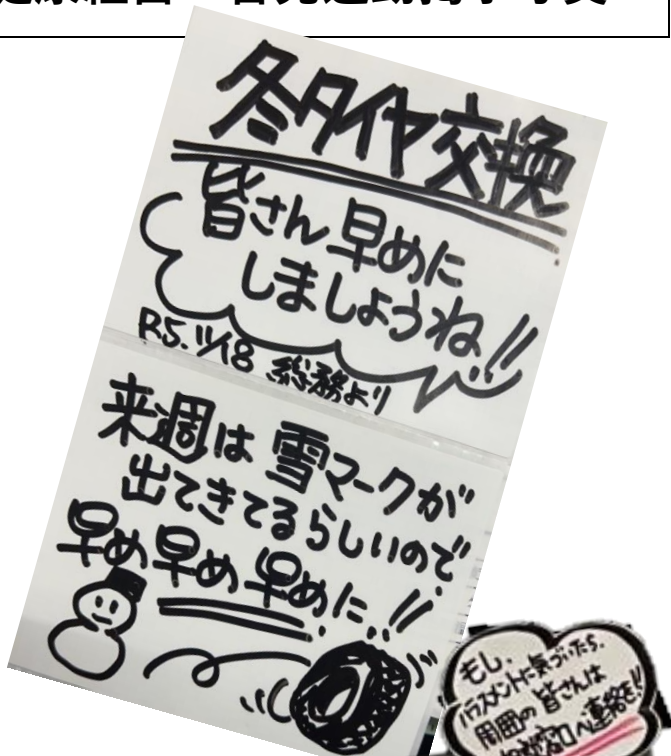 冬タイヤ交換
皆さん早めに
しましょうね!!
R5.11/18 総務より
来週は雪マークが
出てきてるらしいので
早め早め早めに!!
もし、
ハラスメントに気づいたら、
周囲の皆さんは
へ連絡を!!